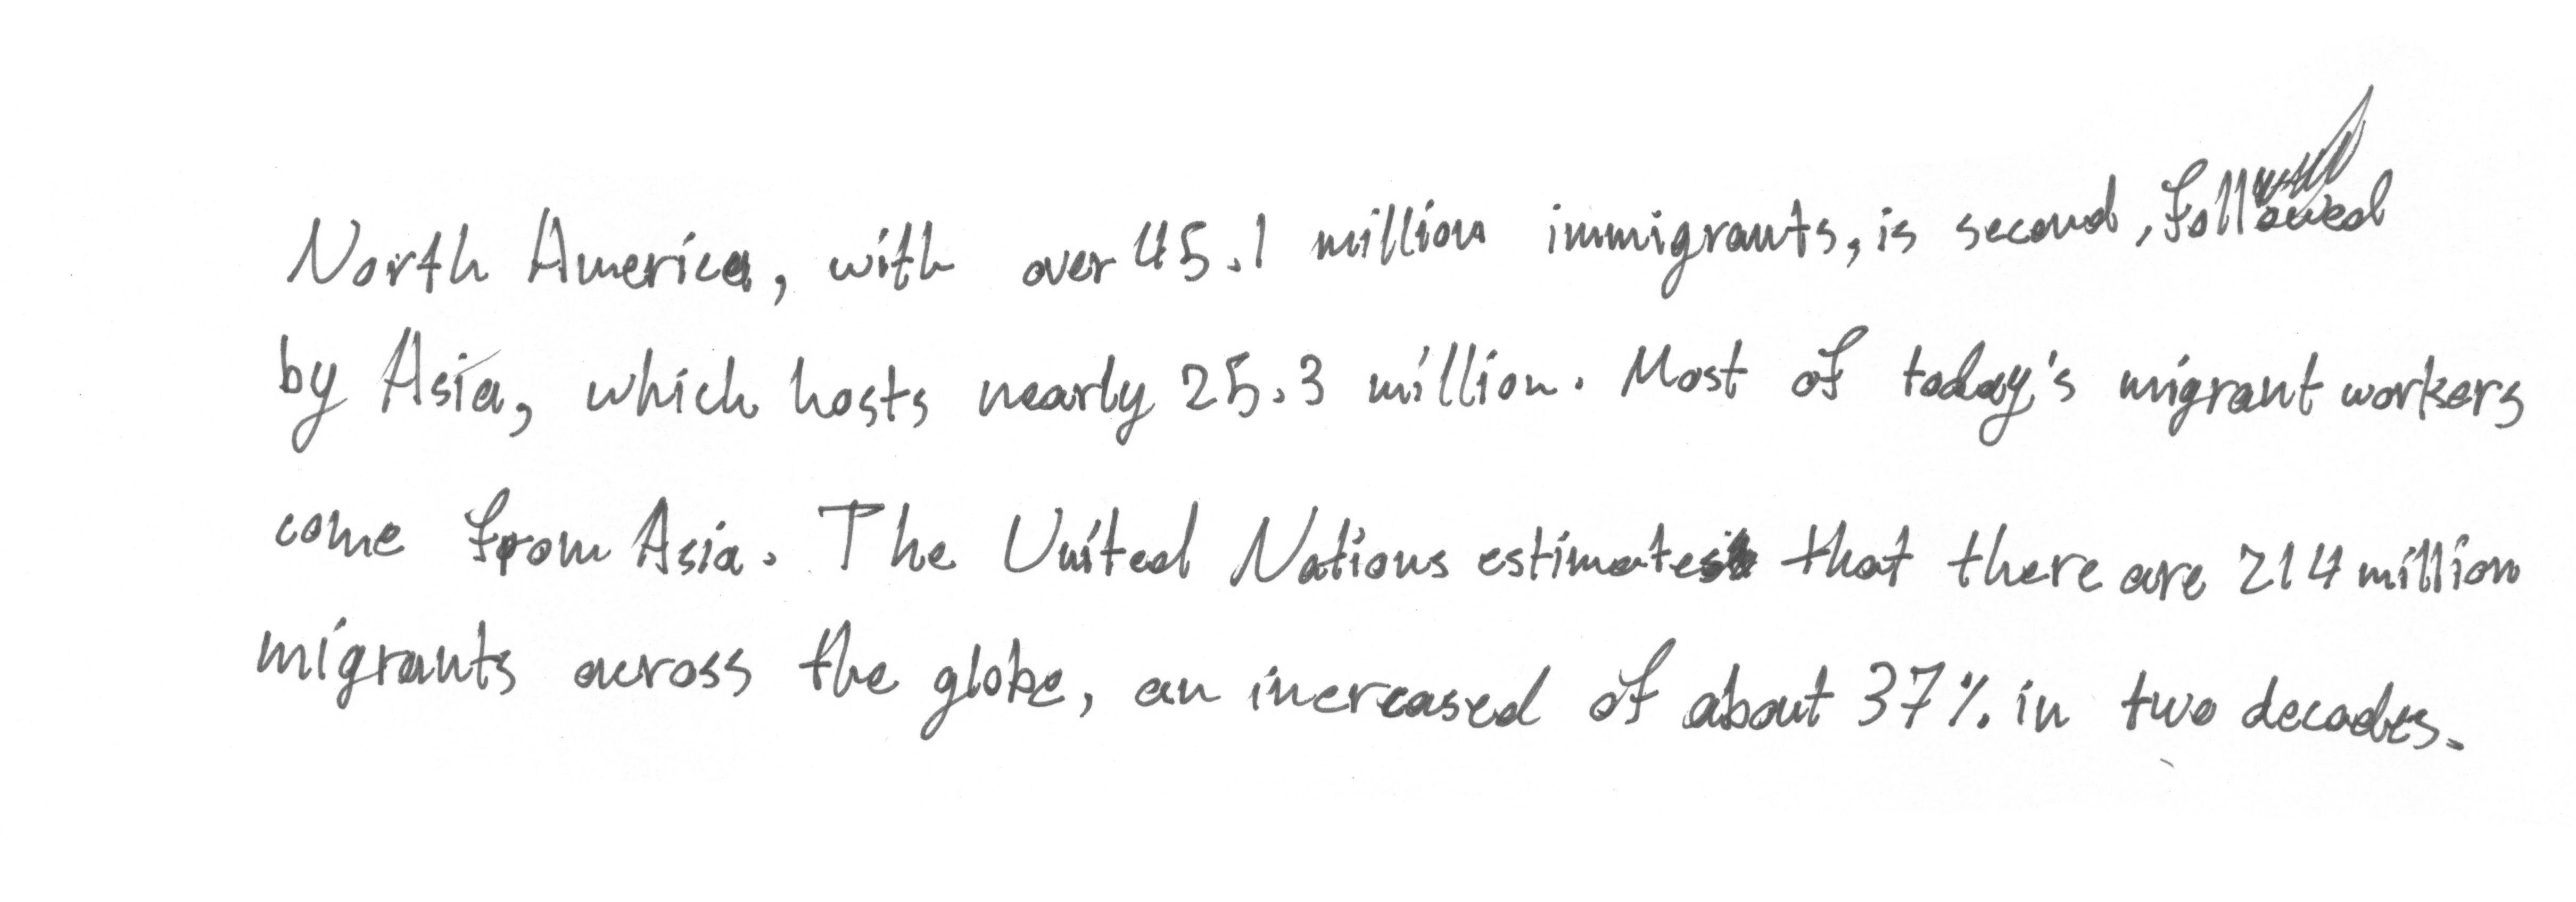 North America, with over 45.1 million immigrants, is second, followed
by Asia, which hosts nearly 25.3 million. Most of today's migrant workers
come from Asia. The United Nations estimates that there are 214 million
migrants across the globe, an increased of about 37% in two decades.